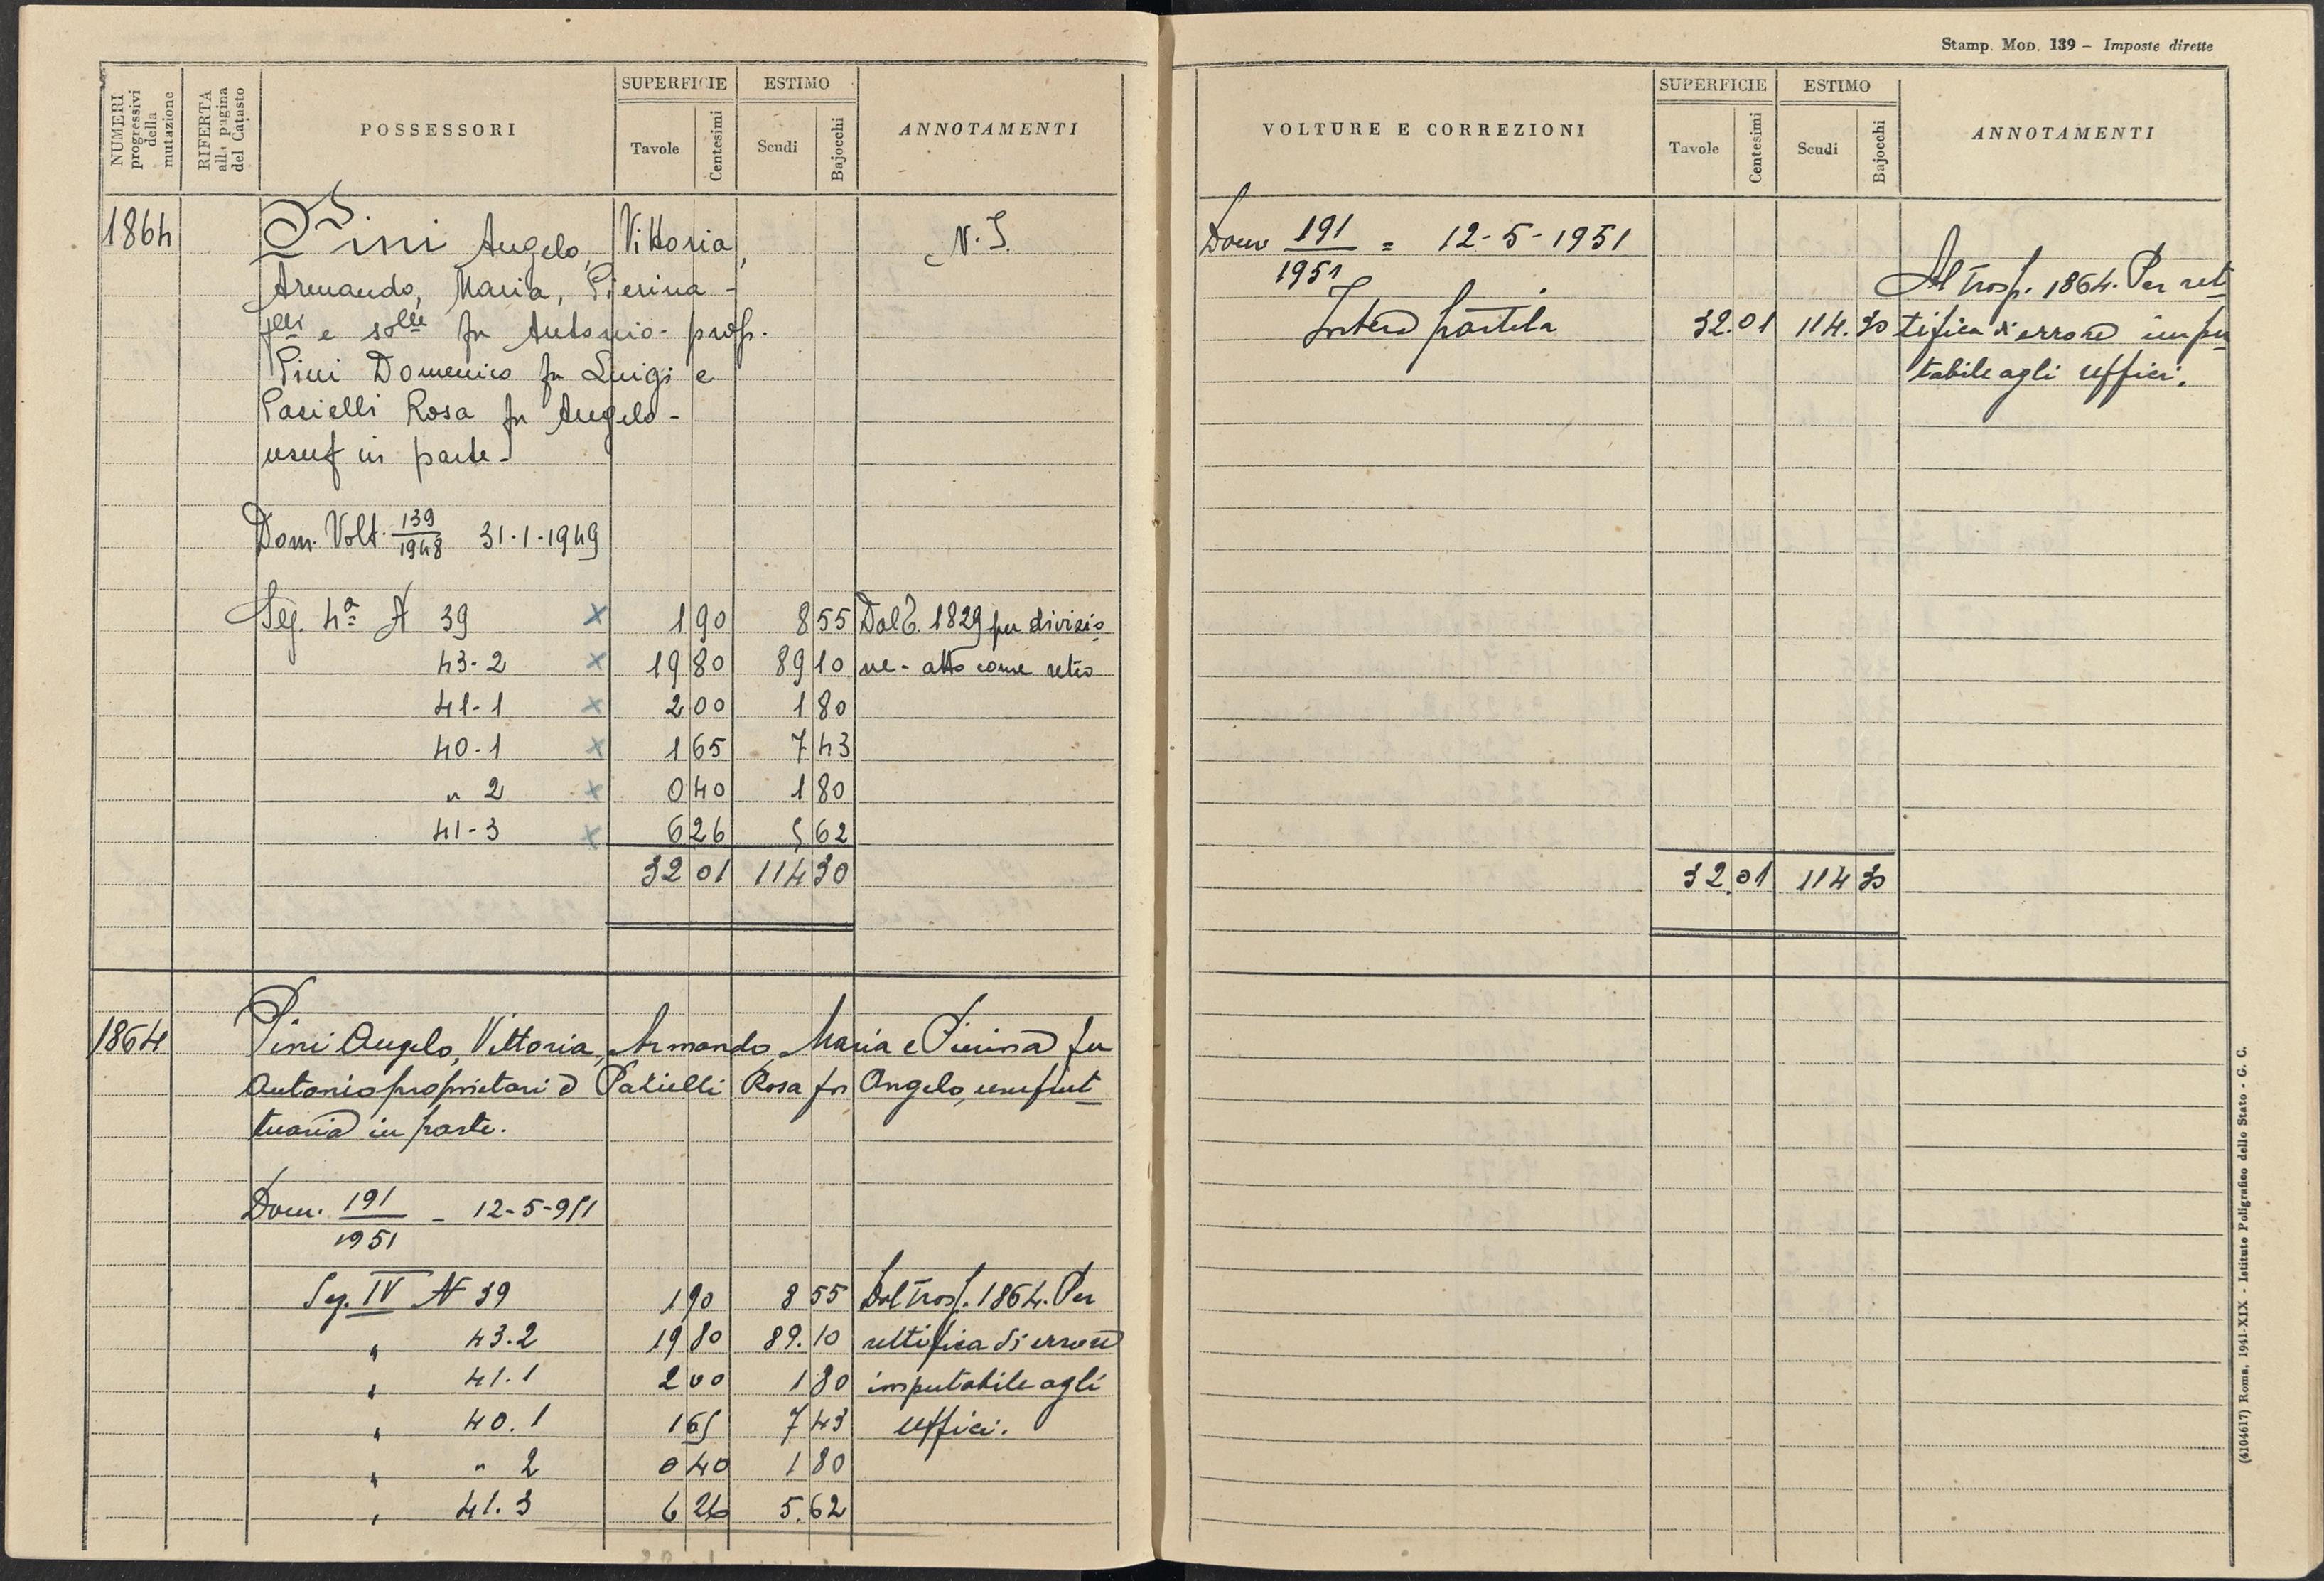 NUMERI progressivi della mutazione
RIFERTA alla pagina del Catasto
POSSESSORI
SUPERFICIE
Tavole
Centesimi
ESTIMO
Scudi
Bajocchi
ANNOTAMENTI
1864 Pini Angelo, Vittoria, N. I.
Armando, Maria, Pierina -
flli e solle fu Antonio - prop.
Pini Domenico fu Luigi e
Pacielli Rosa fu Angelo -
usuf in parte -
Dom. Volt. 139/1948 31-1-1949
Seg. 4ª A 39 × 1 90 8 55 Dal T. 1829 per divisio
43-2 × 19 80 89 10 ne - atto come retro
41-1 × 2 00 1 80
40-1 × 1 65 7 43
" 2 × 0 40 1 80
41-3 × 6 26 5 62
32 01 114 30
1864 Pini Angelo, Vittoria, Armando, Maria e Pierina fu
Antonio proprietari e Pazielli Rosa fu Angelo, usufrut
tuaria in parte.
Dom. 191/1951 - 12-5-951
Seg. IV N 39 1 90 8 55 Dal Trosf. 1864. Per
" 43.2 19 80 89.10 rettifica di errore
" 41.1 2 00 1 80 imputabile agli
" 40.1 1 65 7 43 uffici.
" " 2 0 40 1 80
" 41.3 6 26 5.62
Stamp. Mod. 139 - Imposte dirette
VOLTURE E CORREZIONI
SUPERFICIE
Tavole
Centesimi
ESTIMO
Scudi
Bajocchi
ANNOTAMENTI
Dom 191/1951 = 12-5-1951
Al Trosf. 1864. Per ret
Intera partita 32.01 114.30 tifica di errore impu
tabile agli uffici.
32.01 114 30
(4104617) Roma, 1941-XIX - Istituto Poligrafico dello Stato - G. C.